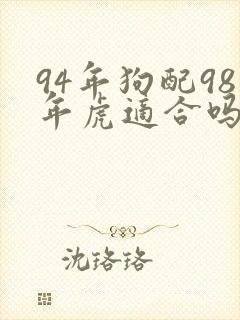 94年狗配98
年虎适合吗
沈珞珞